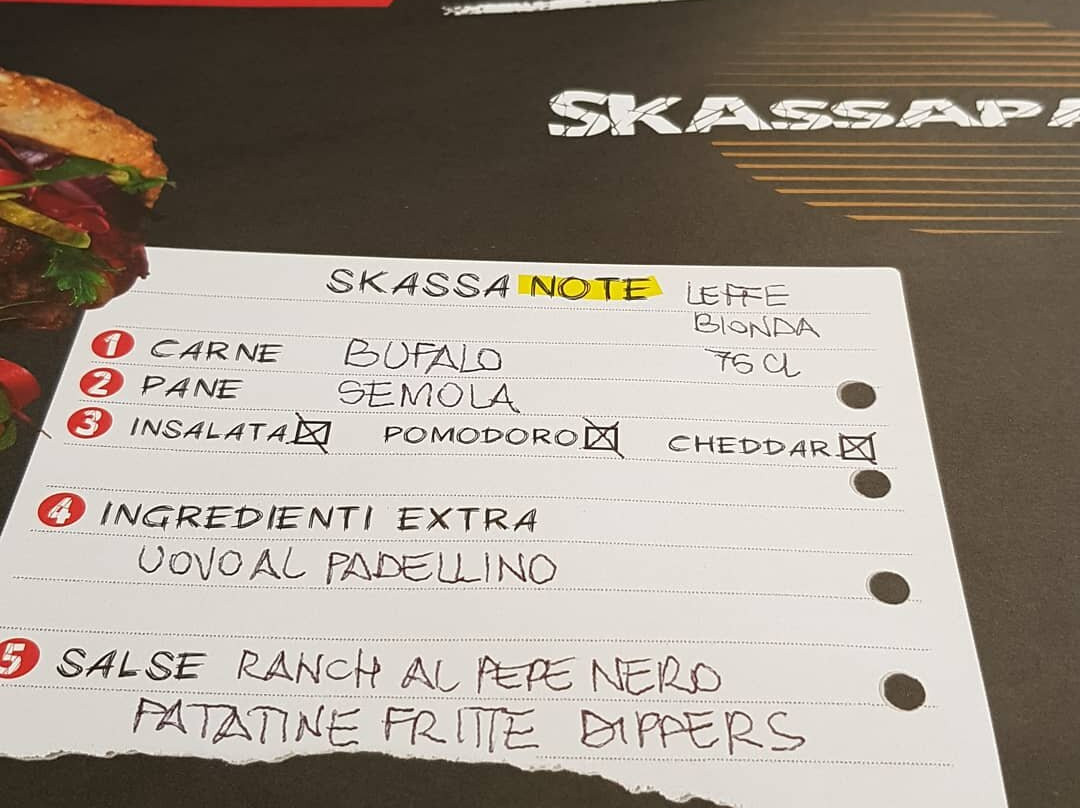 SKASSAPA
SKASSA NOTE LEFFE
BIONDA
1 CARNE BUFALO 75 Cl
2 PANE SEMOLA
3 INSALATA POMODORO CHEDDAR
4 INGREDIENTI EXTRA
UOVO AL PADELLINO
5 SALSE RANCH AL PEPE NERO
PATATINE FRITTE DIPPERS